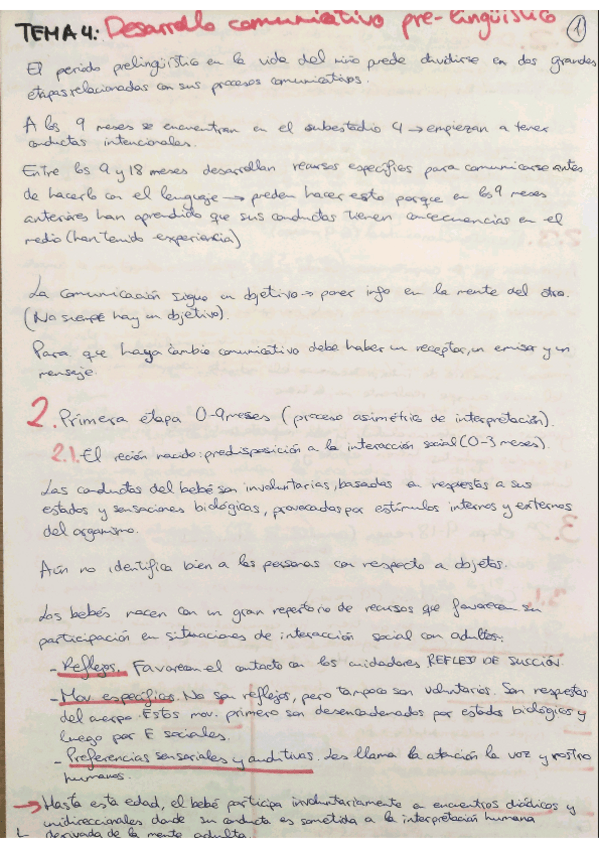 TEMA 4: Desarrollo comunicativo pre-lingüístico 1
El periodo prelingüístico en la vida del niño puede dividirse en dos grandes
etapas relacionadas con sus procesos comunicativos.
A los 9 meses se encuentran en el subestadio 4 → empiezan a tener
conductas intencionales.
Entre los 9 y 18 meses desarrollan recursos específicos para comunicarse antes
de hacerlo con el lenguaje → pueden hacer esto porque en los 9 meses
anteriores han aprendido que sus conductas tienen consecuencias en el
medio (han tenido experiencia)
La comunicación sigue un objetivo → poner info en la mente del otro.
(No siempre hay un objetivo).
Para que haya cambio comunicativo debe haber un receptor, un emisor y un
mensaje.
2. Primera etapa 0-9 meses (proceso asimétrico de interpretación).
2.1. El recién nacido: predisposición a la interacción social (0-3 meses).
Las conductas del bebé son involuntarias, basadas en respuestas a sus
estados y sensaciones biológicas, provocadas por estímulos internos y externos
del organismo.
Aún no identifica bien a las personas con respecto a objetos.
Los bebés nacen con un gran repertorio de recursos que favorecen su
participación en situaciones de interacción social con adultos:
- Reflejos. Favorecen el contacto con los cuidadores REFLEJO DE SUCCIÓN.
- Mov. específicos. No son reflejos, pero tampoco son voluntarios. Son respuestas
del cuerpo. Estos mov. primero son desencadenados por estados biológicos y
luego por E sociales.
- Preferencias sensoriales y auditivas. Les llama la atención la voz y rostro
humanos.
→ Hasta esta edad, el bebé participa involuntariamente en encuentros diádicos y
unidireccionales donde su conducta es sometida a la interpretación humana
derivada de la mente adulta.